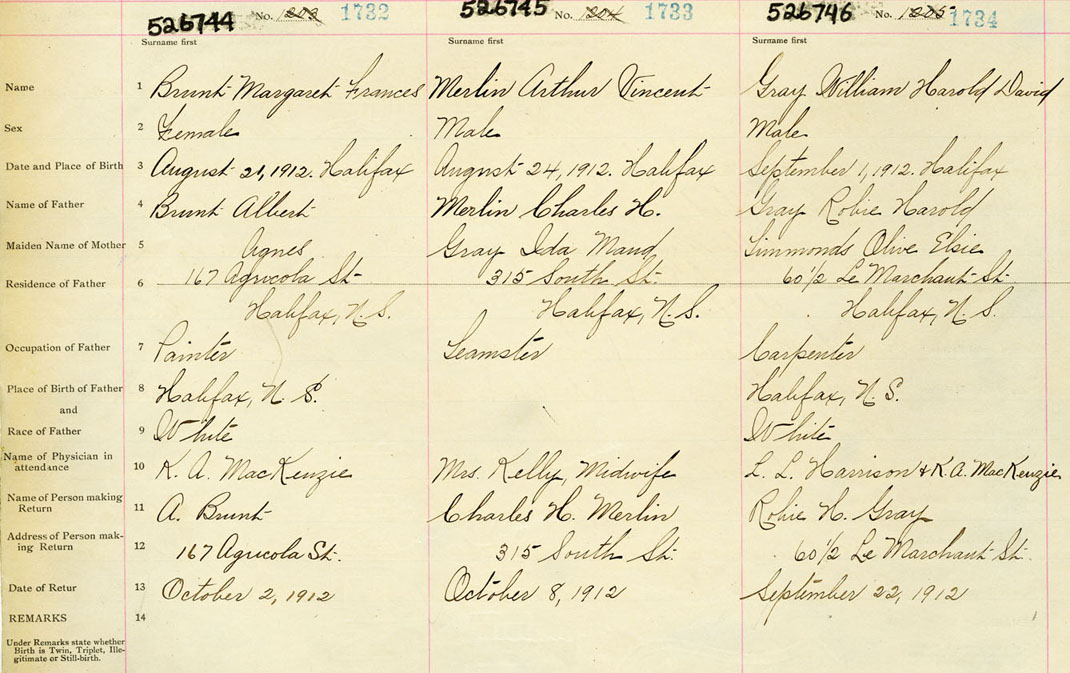 526744 No. 1203 1732 526745 No. 1204 1733 526746 No. 1205 1734
Surname first Surname first Surname first
Name 1 Brunt Margaret Frances Merlin Arthur Vincent Gray William Harold David
Sex 2 Female Male Male
Date and Place of Birth 3 August 21, 1912. Halifax August 24, 1912. Halifax September 1, 1912. Halifax
Name of Father 4 Brunt Albert Merlin Charles H. Gray Robie Harold
Maiden Name of Mother 5 Agnes Gray Ida Maud Simmonds Olive Elsie
Residence of Father 6 167 Agricola St. 315 South St. 60 1/2 Le Marchant St.
Halifax, N.S. Halifax, N.S. Halifax, N.S.
Occupation of Father 7 Painter Teamster Carpenter
Place of Birth of Father 8 Halifax, N.S. Halifax, N.S.
and
Race of Father 9 White White
Name of Physician in attendance 10 K. A. MacKenzie Mrs. Kelly, Midwife L. L. Harrison & K.A. MacKenzie
Name of Person making Return 11 A. Brunt Charles H. Merlin Robie H. Gray
Address of Person mak-
ing Return 12 167 Agricola St. 315 South St. 60 1/2 Le Marchant St.
Date of Retur 13 October 2, 1912 October 8, 1912 September 22, 1912
REMARKS 14
Under Remarks state whether
Birth is Twin, Triplet, Ille-
gitimate or Still-birth.